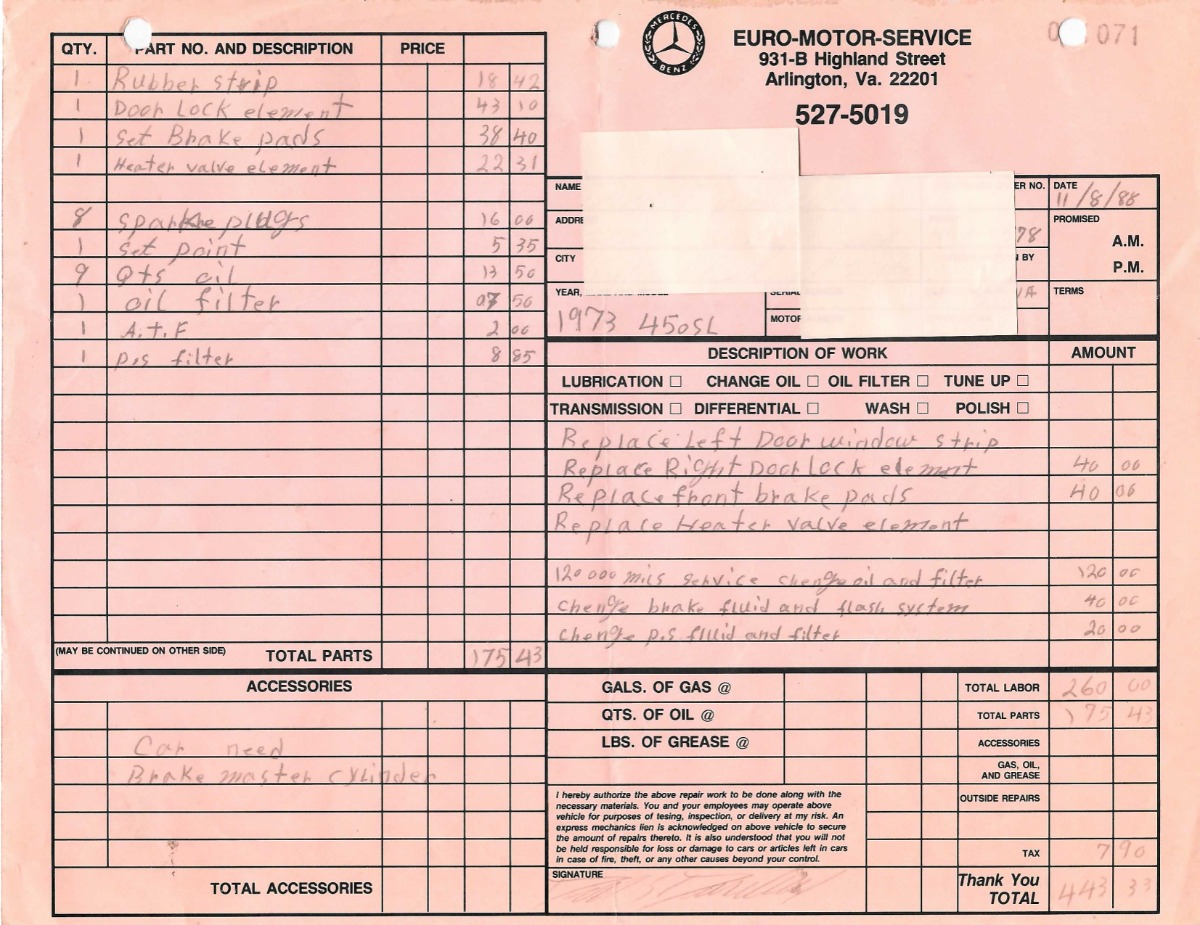 MERCEDES BENZ
EURO-MOTOR-SERVICE
931-B Highland Street
Arlington, Va. 22201
527-5019
071
QTY. PART NO. AND DESCRIPTION PRICE
1 Rubber strip 18 42
1 Door Lock element 43 10
1 Set Brake pads 38 40
1 Heater valve element 22 31
8 plugs 16 00
1 Set point 5 35
9 Qts oil 13 50
1 oil filter 07 50
1 A.T.F 2 00
1 P.S filter 8 85
(MAY BE CONTINUED ON OTHER SIDE) TOTAL PARTS 175 43
ACCESSORIES
Car need
Brake master cylinder
TOTAL ACCESSORIES
NAME
ER NO.
DATE 11/8/88
ADDRE
78
PROMISED
A.M.
P.M.
CITY
N BY
YEAR,
1973 450SL
SERIAL
VA
MOTOR
TERMS
DESCRIPTION OF WORK AMOUNT
LUBRICATION □ CHANGE OIL □ OIL FILTER □ TUNE UP □
TRANSMISSION □ DIFFERENTIAL □ WASH □ POLISH □
Replace Left Door window strip
Replace Right Door Lock element 40 00
Replace front brake pads 40 00
Replace Heater valve element
120 000 mils service chenge oil and filter 120 00
chenge brake fluid and flash system 40 00
chenge p.s fluid and filter 20 00
GALS. OF GAS @
QTS. OF OIL @
LBS. OF GREASE @
TOTAL LABOR 260 00
TOTAL PARTS 175 43
ACCESSORIES
GAS, OIL,
AND GREASE
OUTSIDE REPAIRS
TAX 7 90
Thank You
TOTAL 443 33
I hereby authorize the above repair work to be done along with the
necessary materials. You and your employees may operate above
vehicle for purposes of tesing, inspection, or delivery at my risk. An
express mechanics lien is acknowledged on above vehicle to secure
the amount of repairs thereto. It is also understood that you will not
be held responsible for loss or damage to cars or articles left in cars
in case of fire, theft, or any other causes beyond your control.
SIGNATURE